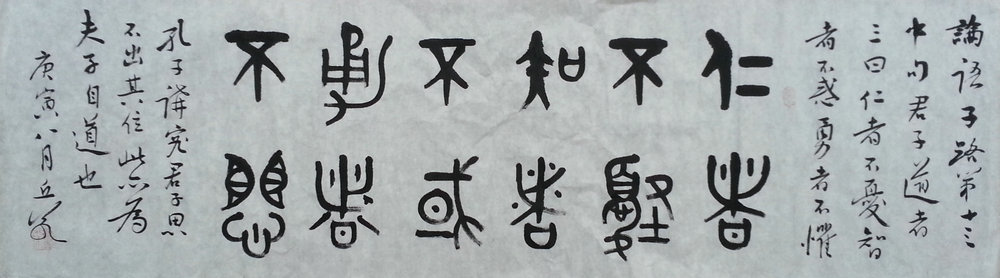 論語子路第十三
中句君子道者
三曰仁者不憂智
者不惑勇者不懼
仁者
不
知者
不或
勇者
不愳
孔子講究君子思
不出其位此亦為
夫子自道也
庚寅八月丘